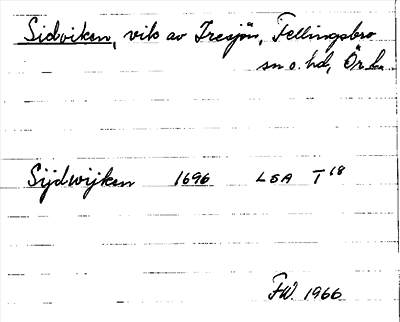 Sidviken, vik av Iresjön, Fellingsbro
sn o. hd, Ör. l.
Sijdwijken 1696 LSA T 18
FW. 1966